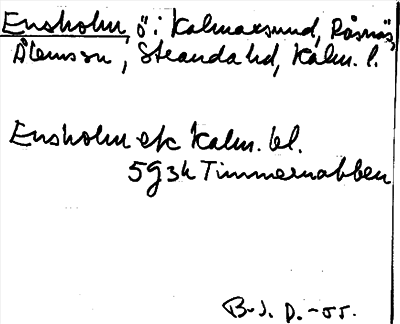 Ensholm, ö i Kalmarsund, Råsnäs,
Ålems sn, Stranda hd, Kalm. l.
Ensholm ek Kalm. bl.
5g3h Timmernabben
B.J. D. -55.